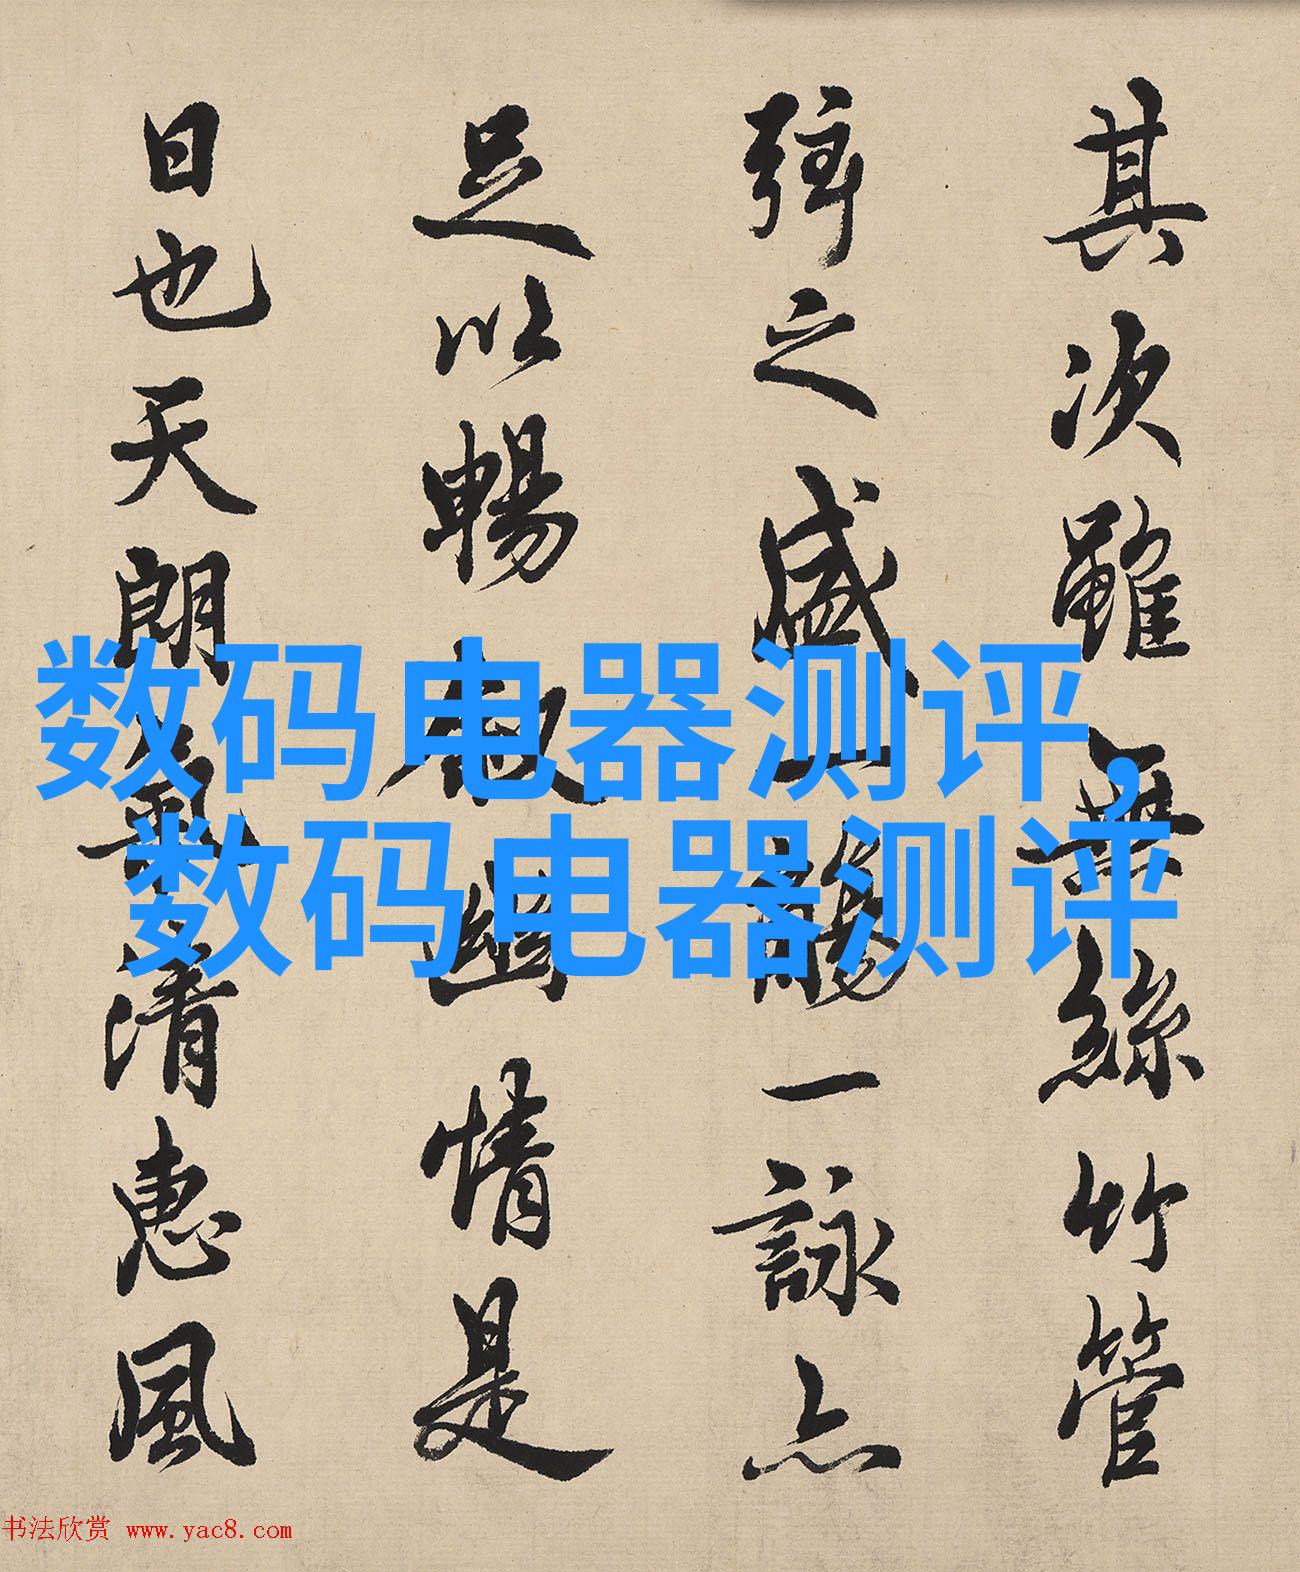 其次雖無絲竹管
弦之盛一觴一詠亦
足以暢敘幽情是
日也天朗氣清惠風
数码电器测评,
数码电器测评
书法欣赏 www.yac8.com